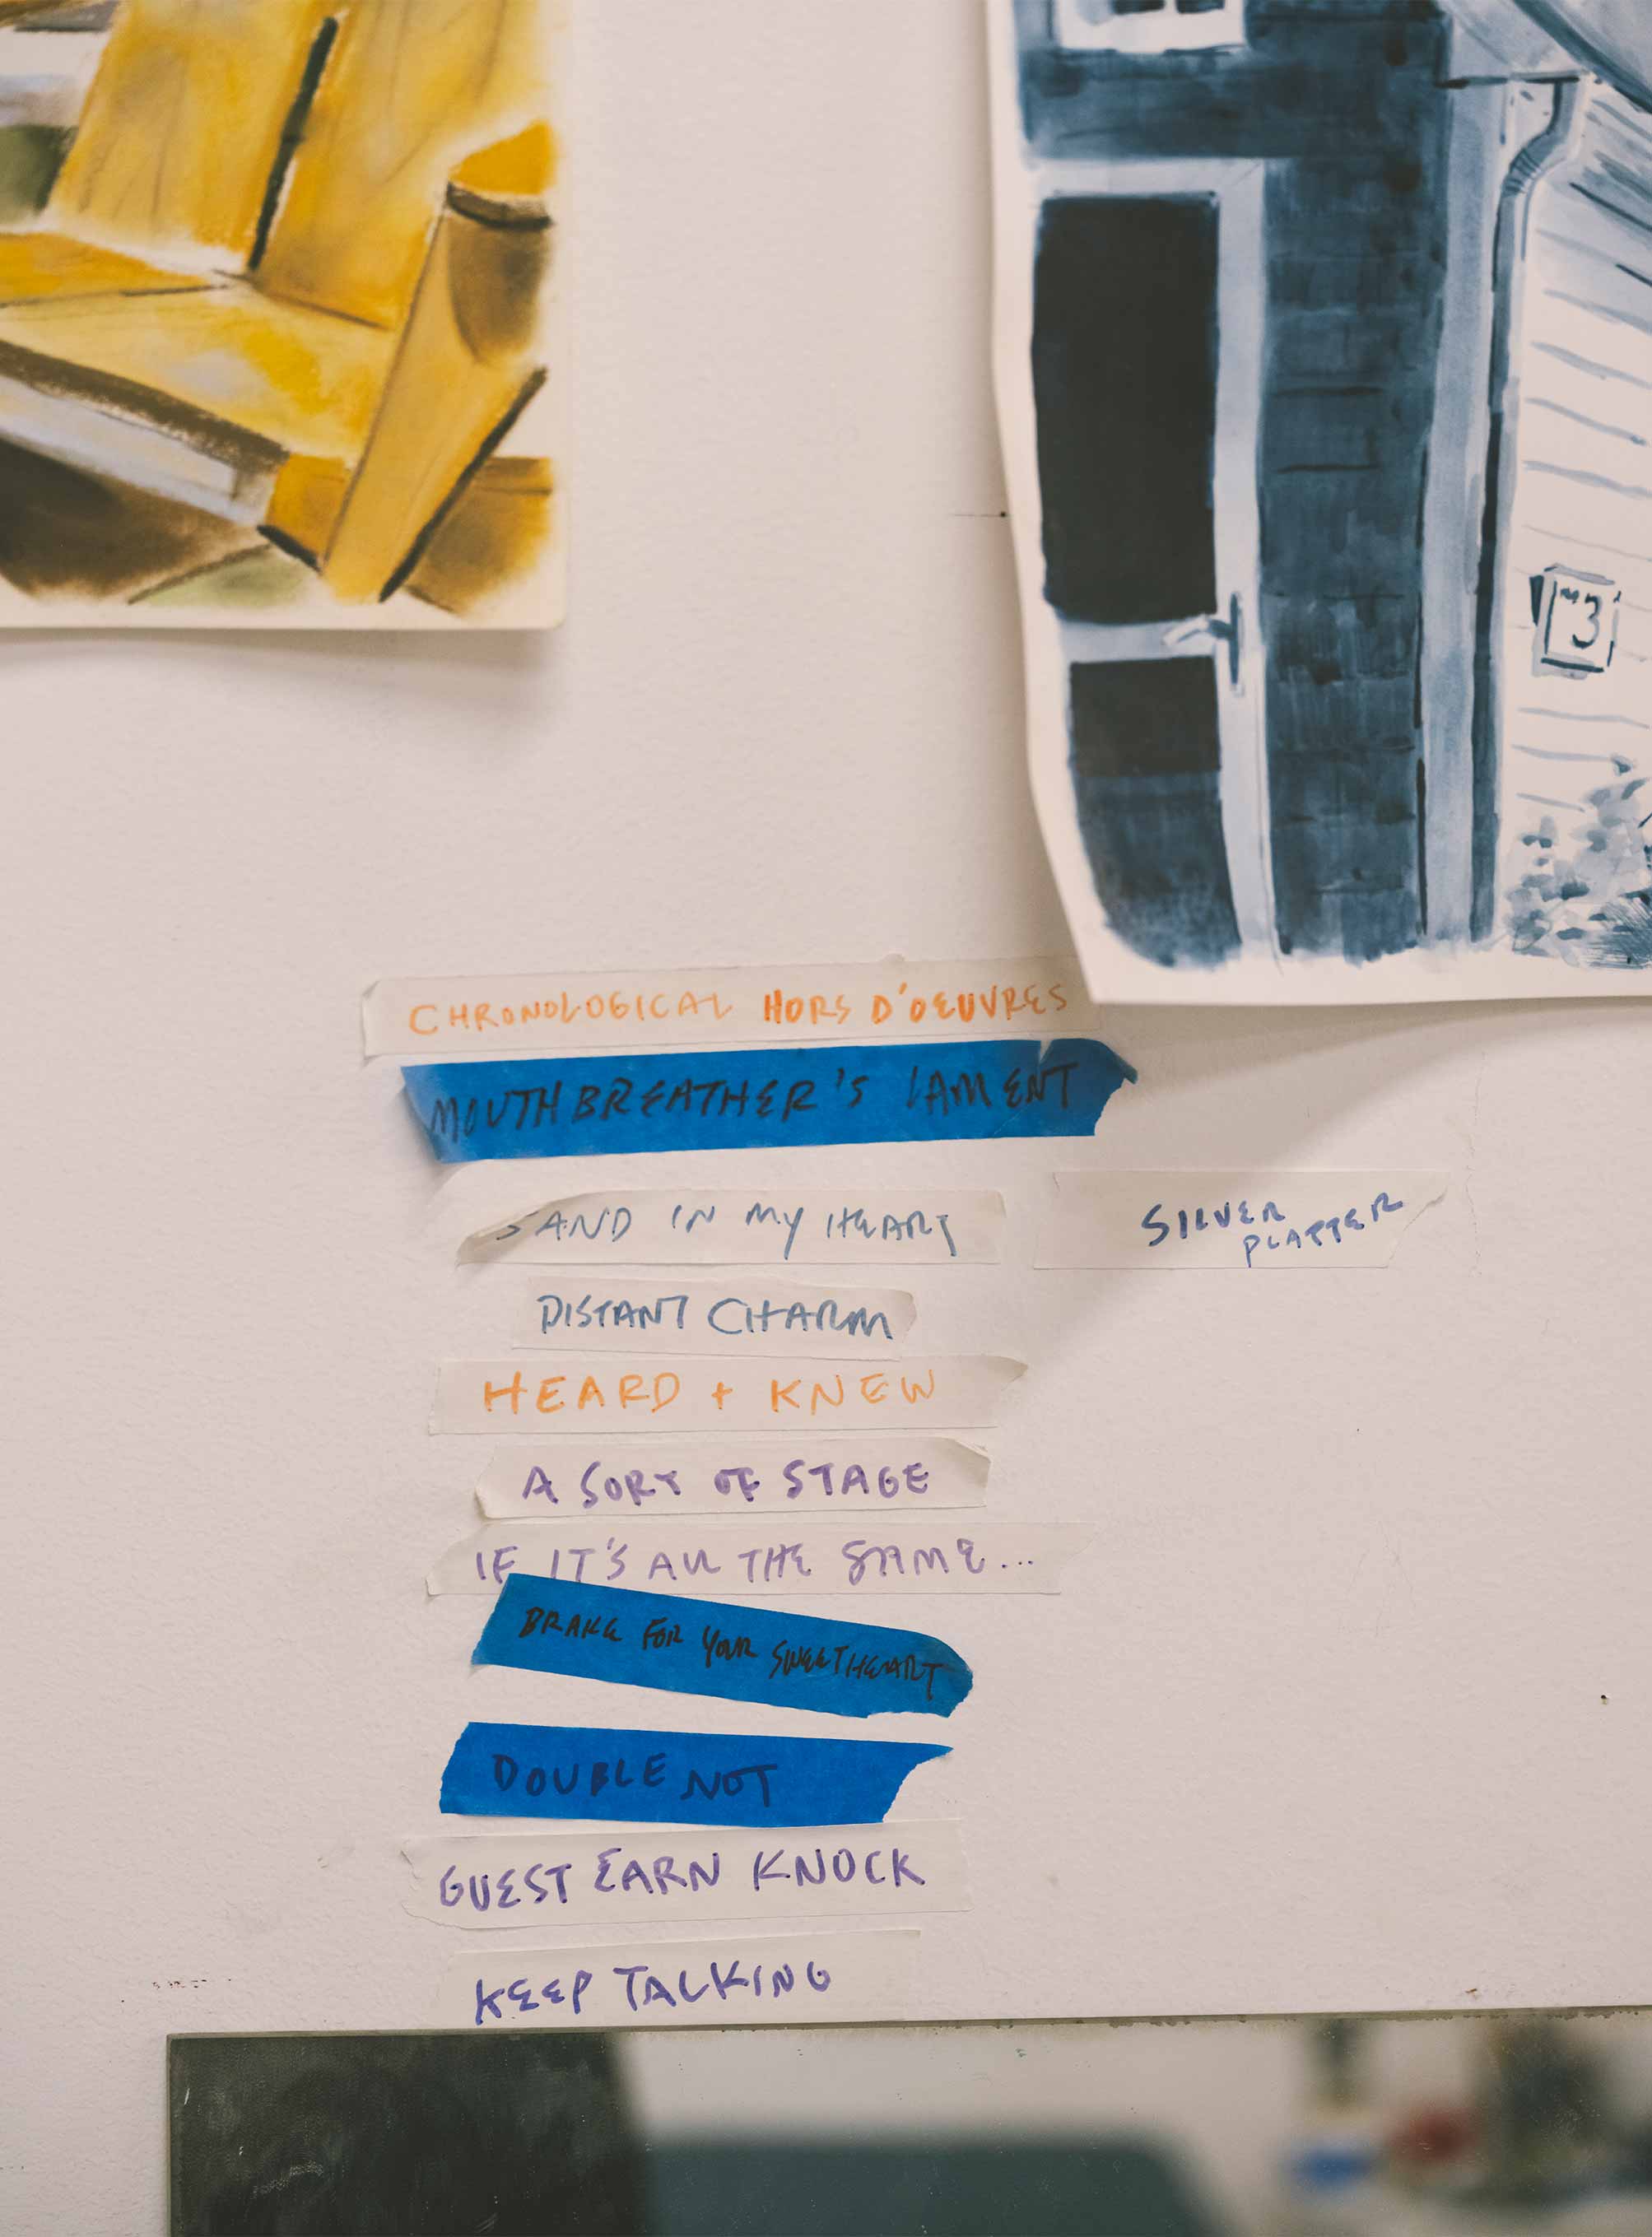 "3
CHRONOLOGICAL HORS D'OEUVRES
MOUTHBREATHER'S LAMENT
SAND IN MY HEART
SILVER
PLATTER
DISTANT CHARM
HEARD + KNEW
A SORT OF STAGE
IF IT'S ALL THE SAME...
BRAKE FOR YOUR SWEETHEART
DOUBLE NOT
GUEST EARN KNOCK
KEEP TALKING